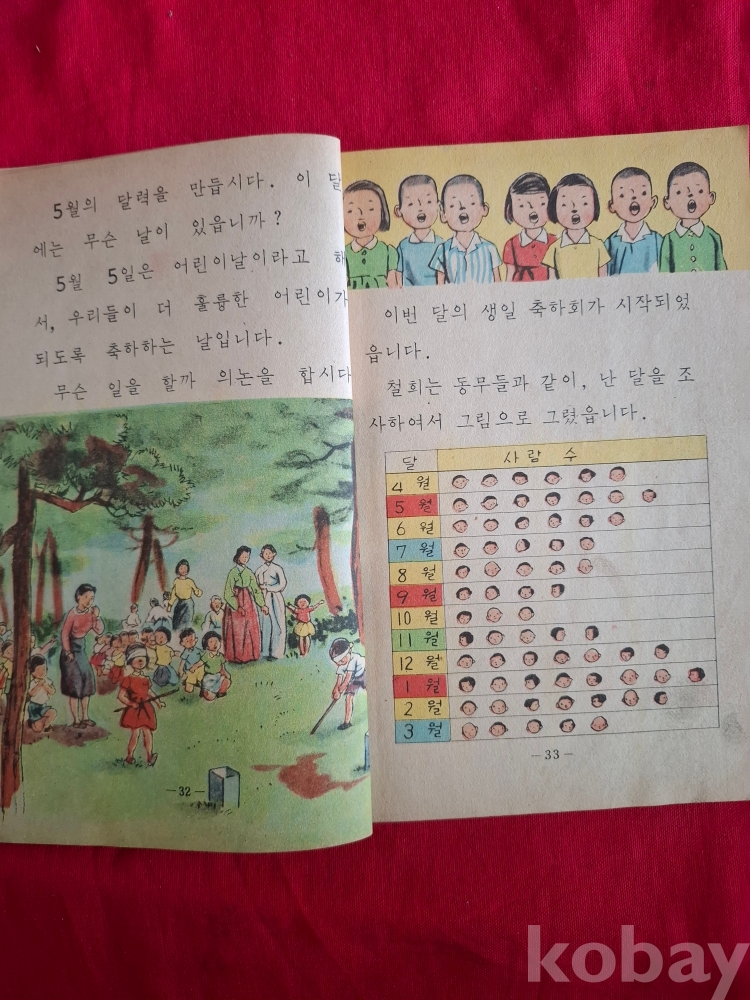 5월의 달력을 만듭시다. 이 달
에는 무슨 날이 있읍니까?
5월 5일은 어린이날이라고 해
서, 우리들이 더 훌륭한 어린이가
되도록 축하하는 날입니다.
무슨 일을 할까 의논을 합시다
-32-
이번 달의 생일 축하회가 시작되었
읍니다.
철희는 동무들과 같이, 난 달을 조
사하여서 그림으로 그렸읍니다.
달 사람 수
4 월
5 월
6 월
7 월
8 월
9 월
10 월
11 월
12 월
1 월
2 월
3 월
-33-
kobay